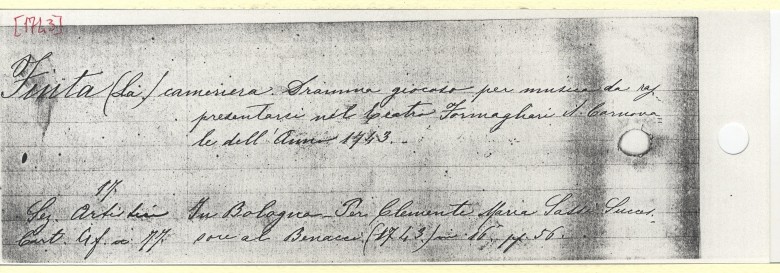 [1743]
Finta (La) cameriera. Dramma giocoso per musica da rap
presentarsi nel teatro Formagliari il Carnova
le dell'Anno 1743.
17.
Sez. Artistica In Bologna - Per Clemente Maria Sassi Succes.
Cart. Af. n 77. sore al Benacci (1743) in 16, pp. 56.